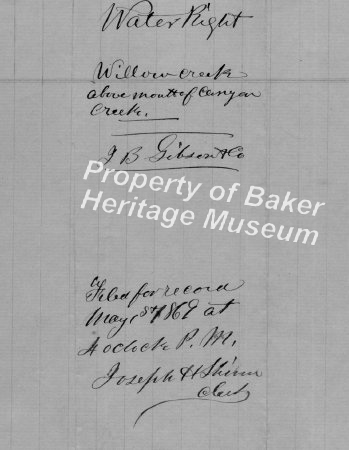 Water Right
Willow creek
above mouth of Canyon
Creek.
J B Gibson & Co
Property of Baker
Heritage Museum
Filed for record
May 1st 1869 at
4 oclock P. M.
Joseph H Shinn
Clerk